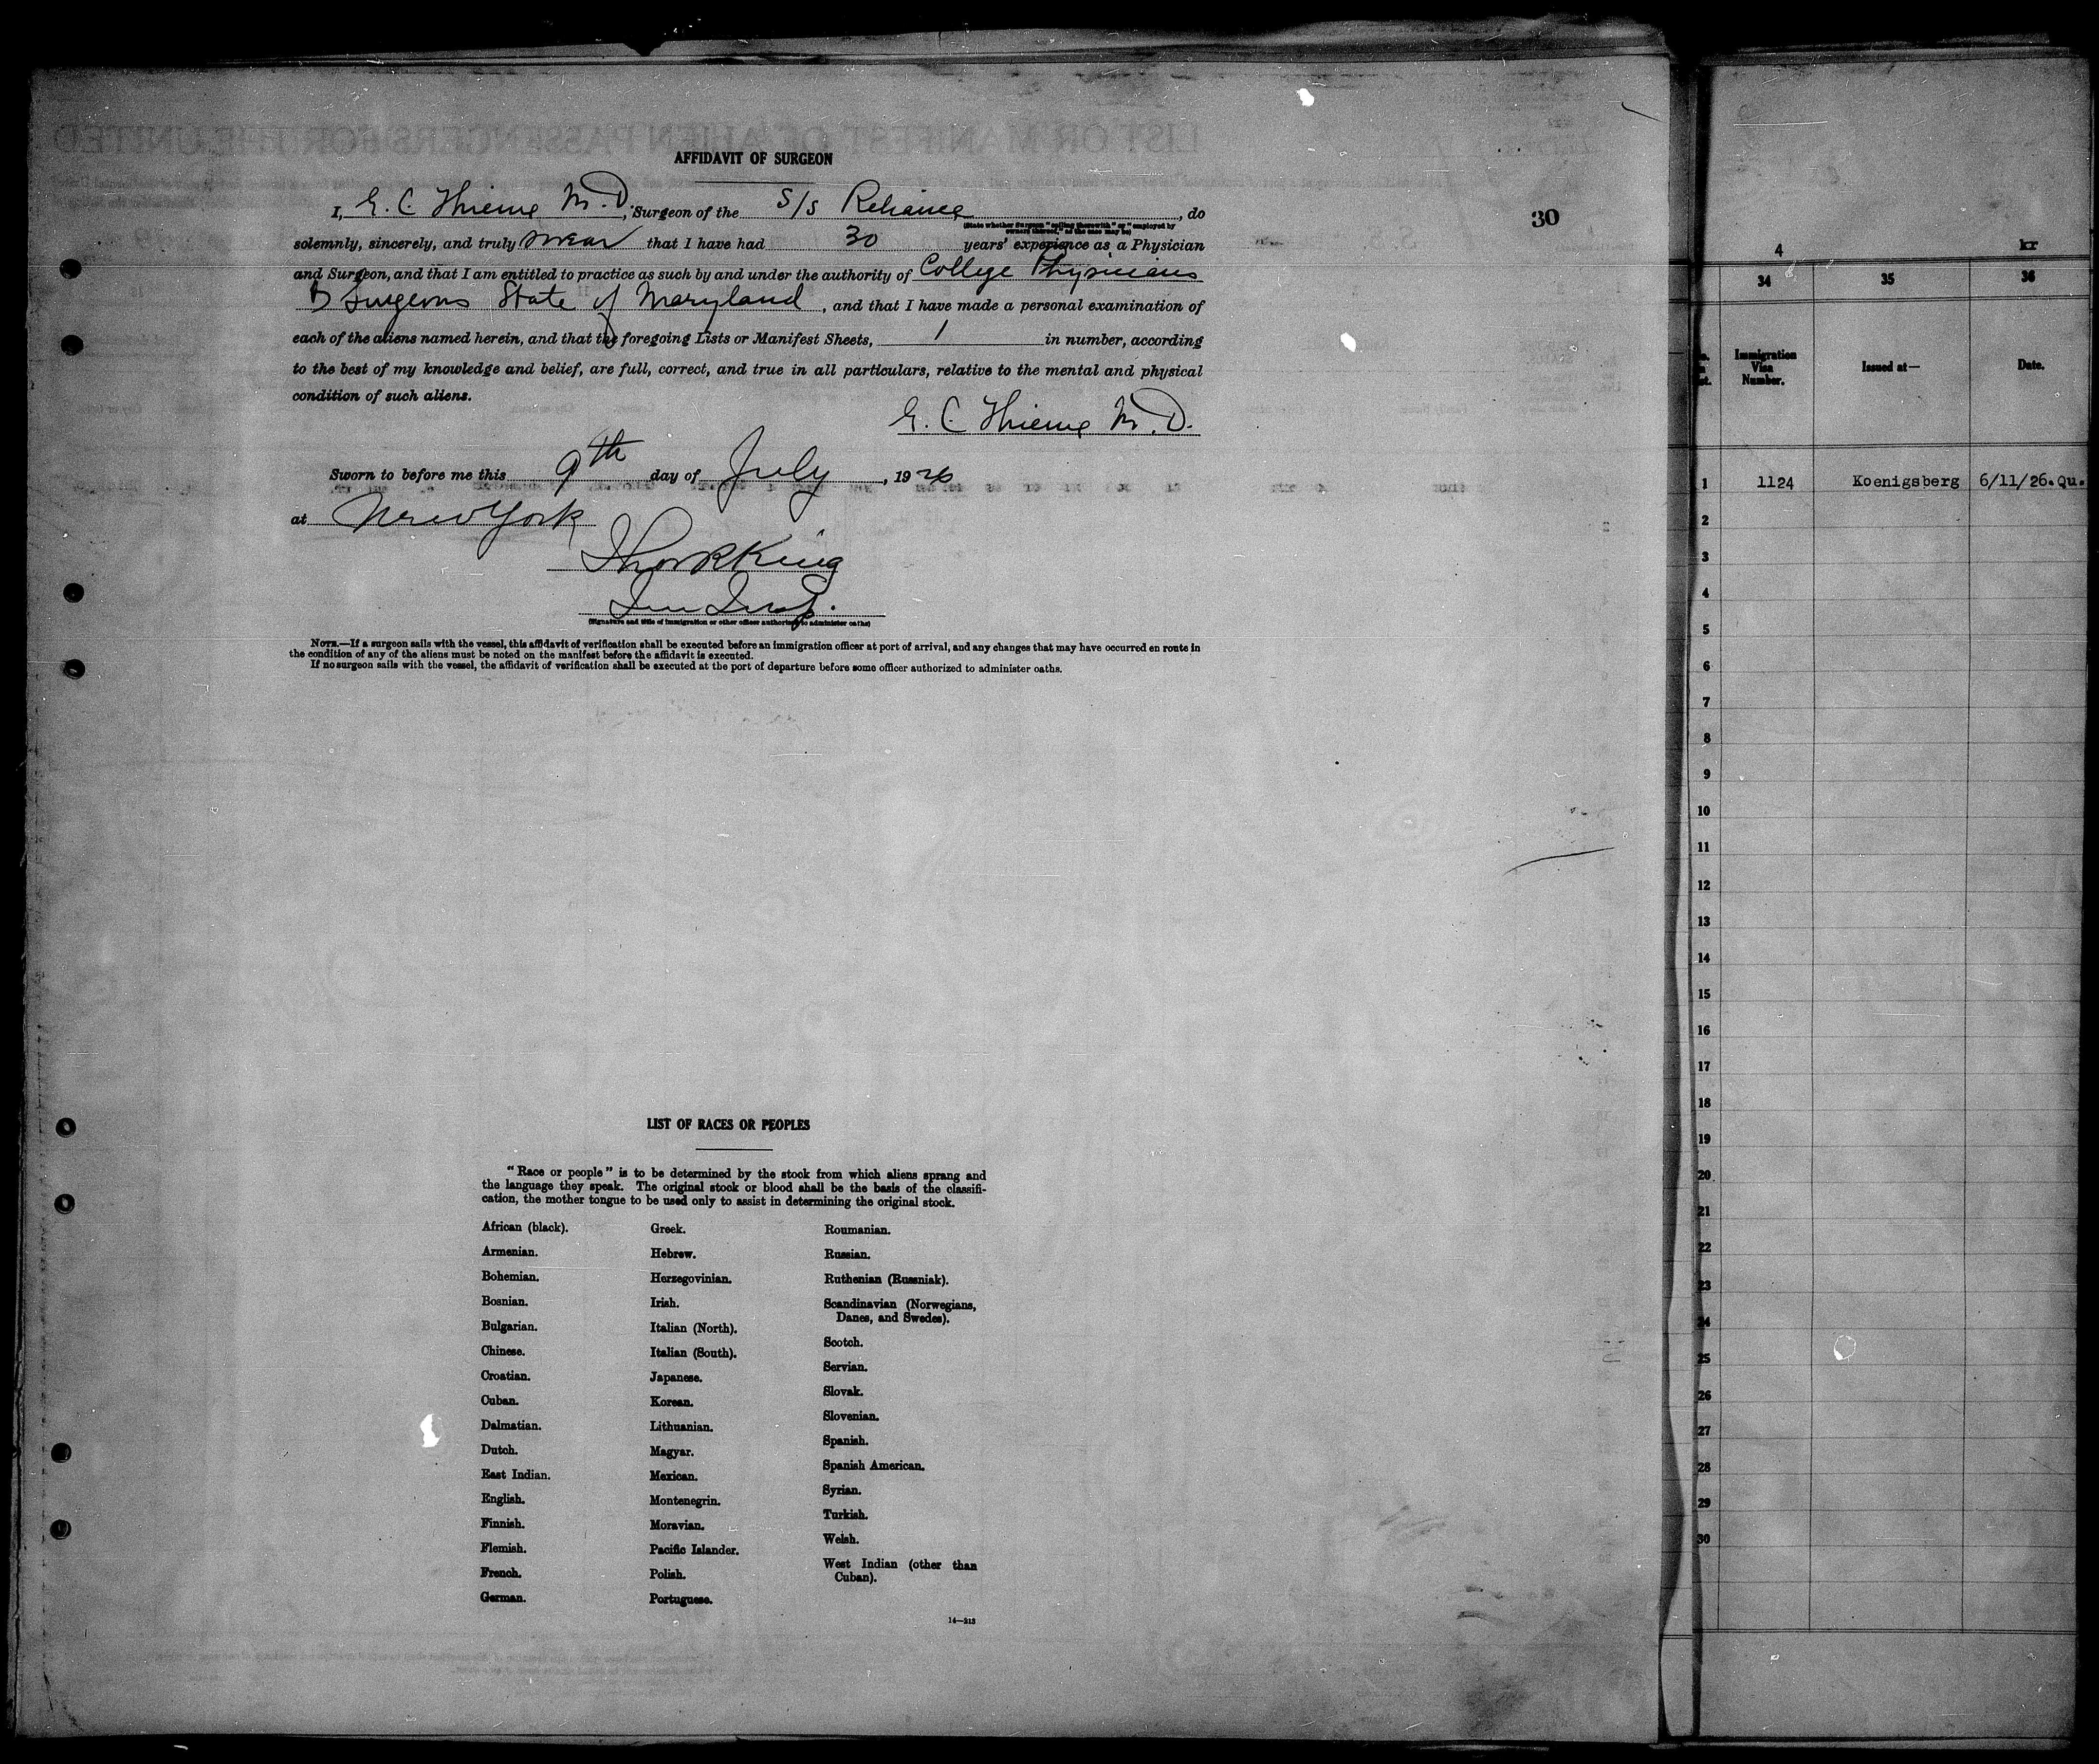 AFFIDAVIT OF SURGEON
I, E. C. Thieme M.D., Surgeon of the S/S Reliance, do
(State whether Surgeon "sailing therewith" or "employed by
owners thereof," as the case may be)
solemnly, sincerely, and truly swear that I have had 30 years' experience as a Physician
and Surgeon, and that I am entitled to practice as such by and under the authority of College Physicians
& Surgeons State of Maryland, and that I have made a personal examination of
each of the aliens named herein, and that the foregoing Lists or Manifest Sheets, 1 in number, according
to the best of my knowledge and belief, are full, correct, and true in all particulars, relative to the mental and physical
condition of such aliens.
E. C. Thieme M.D.
Sworn to before me this 9th day of July, 1926
at New York
King
(Signature and title of immigration or other officer authorized to administer oaths)
NOTE.—If a surgeon sails with the vessel, this affidavit of verification shall be executed before an immigration officer at port of arrival, and any changes that may have occurred en route in
the condition of any of the aliens must be noted on the manifest before the affidavit is executed.
If no surgeon sails with the vessel, the affidavit of verification shall be executed at the port of departure before some officer authorized to administer oaths.
30
LIST OF RACES OR PEOPLES
"Race or people" is to be determined by the stock from which aliens sprang and
the language they speak. The original stock or blood shall be the basis of the classifi-
cation, the mother tongue to be used only to assist in determining the original stock.
African (black).
Armenian.
Bohemian.
Bosnian.
Bulgarian.
Chinese.
Croatian.
Cuban.
Dalmatian.
Dutch.
East Indian.
English.
Finnish.
Flemish.
French.
German.
Greek.
Hebrew.
Herzegovinian.
Irish.
Italian (North).
Italian (South).
Japanese.
Korean.
Lithuanian.
Magyar.
Mexican.
Montenegrin.
Moravian.
Pacific Islander.
Polish.
Portuguese.
Roumanian.
Russian.
Ruthenian (Russniak).
Scandinavian (Norwegians,
Danes, and Swedes).
Scotch.
Servian.
Slovak.
Slovenian.
Spanish.
Spanish American.
Syrian.
Turkish.
Welsh.
West Indian (other than
Cuban).
14—213
4 kr
34 35 36
Immigration
Visa
Number.
Issued at—
Date.
1 1124 Koenigsberg 6/11/26.Qu.
2
3
4
5
6
7
8
9
10
11
12
13
14
15
16
17
18
19
20
21
22
23
24
25
26
27
28
29
30